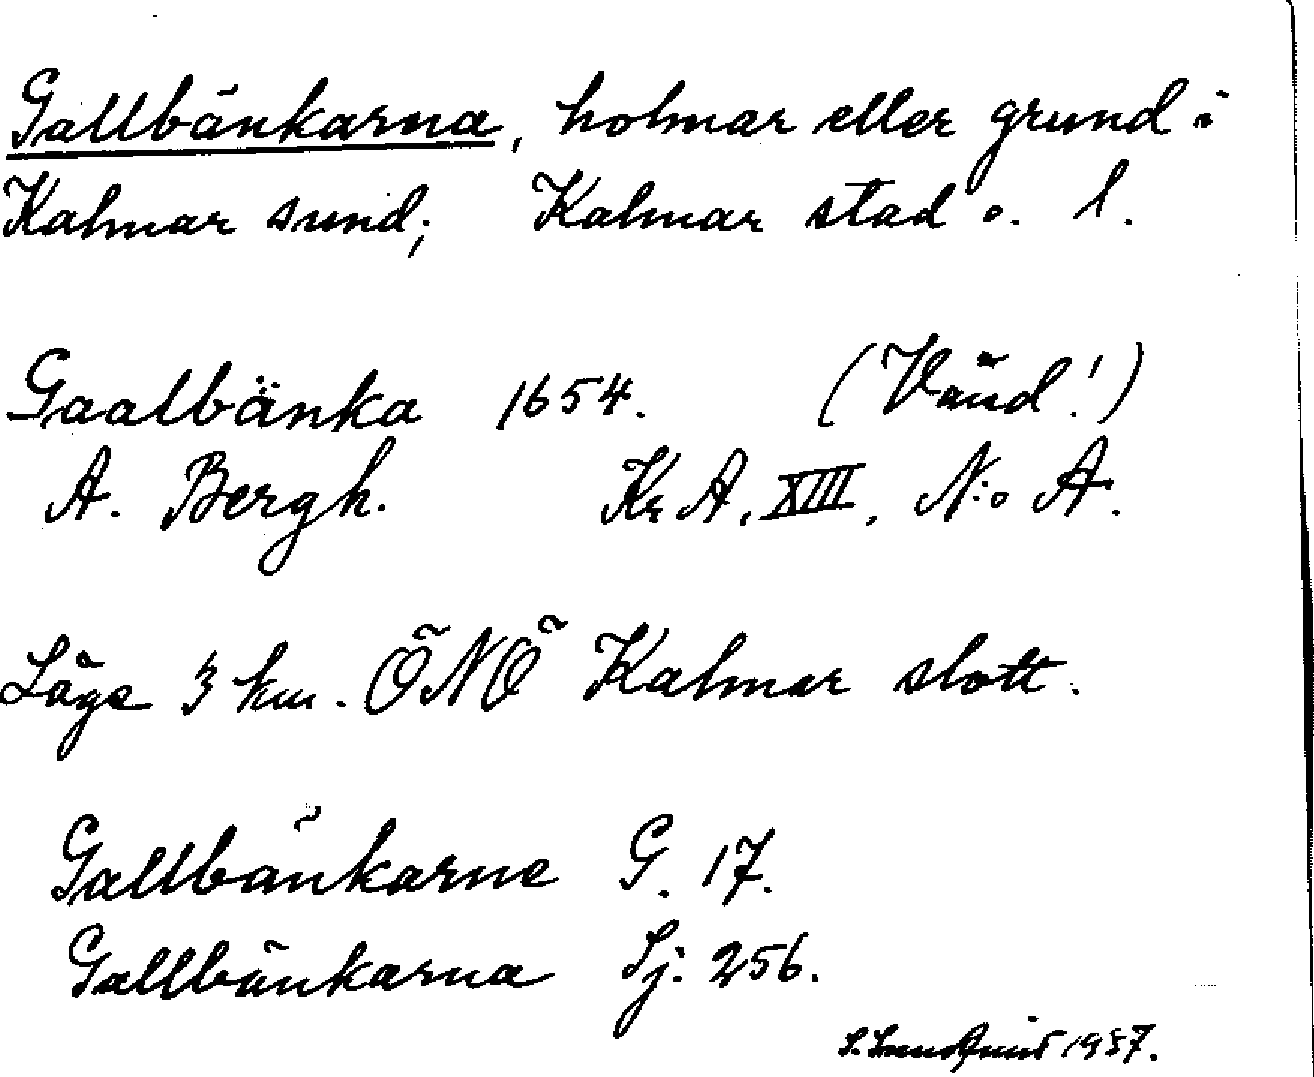 Gallbänkarna, holmar eller grund i
Kalmar sund; Kalmar stad o. l.
Gaalbänka 1654. (Vänd!)
A. Bergh. KrA, XIII, N:o A.
Läge 3 km. ÖNÖ Kalmar slott.
Gallbänkarne G. 17.
Gallbänkarna Sj. 256.
S. Lundquist 1957.